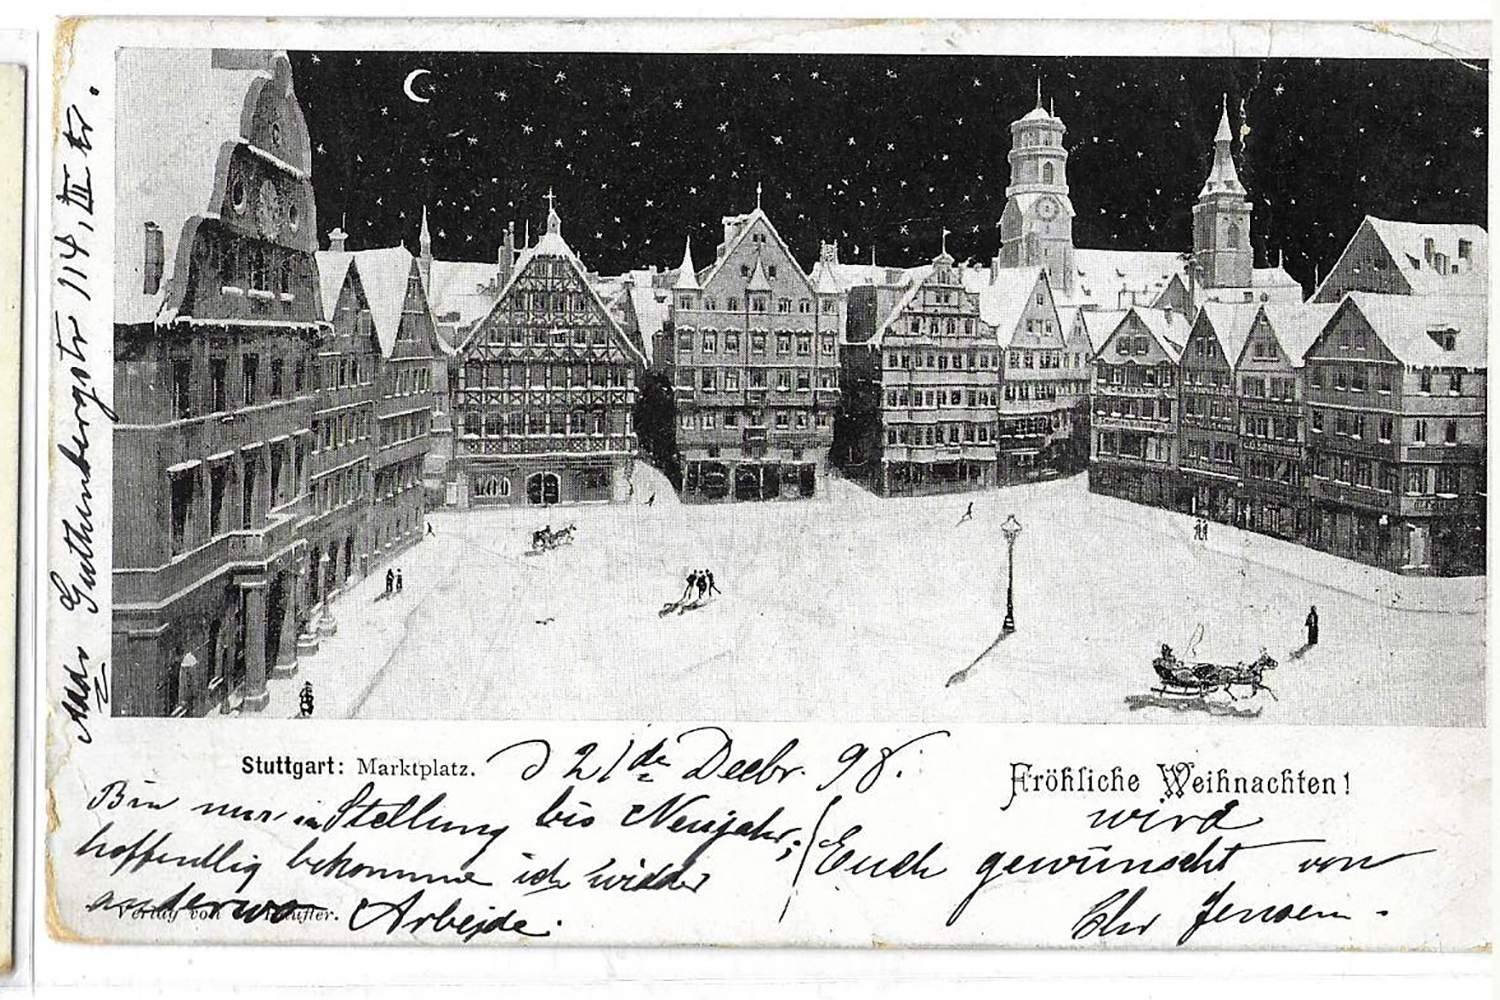 Adr. Guthenbergstr 114, III tr.
Stuttgart: Marktplatz.
D 21 de Decbr. 98.
Fröhliche Weihnachten!
wird
Euch gewünscht von
Chr Jensen.
Bin nur in Stellung bis Neujahr,
hoffendlig bekomme ich wieder
anderwo Arbejde.
Verlag von